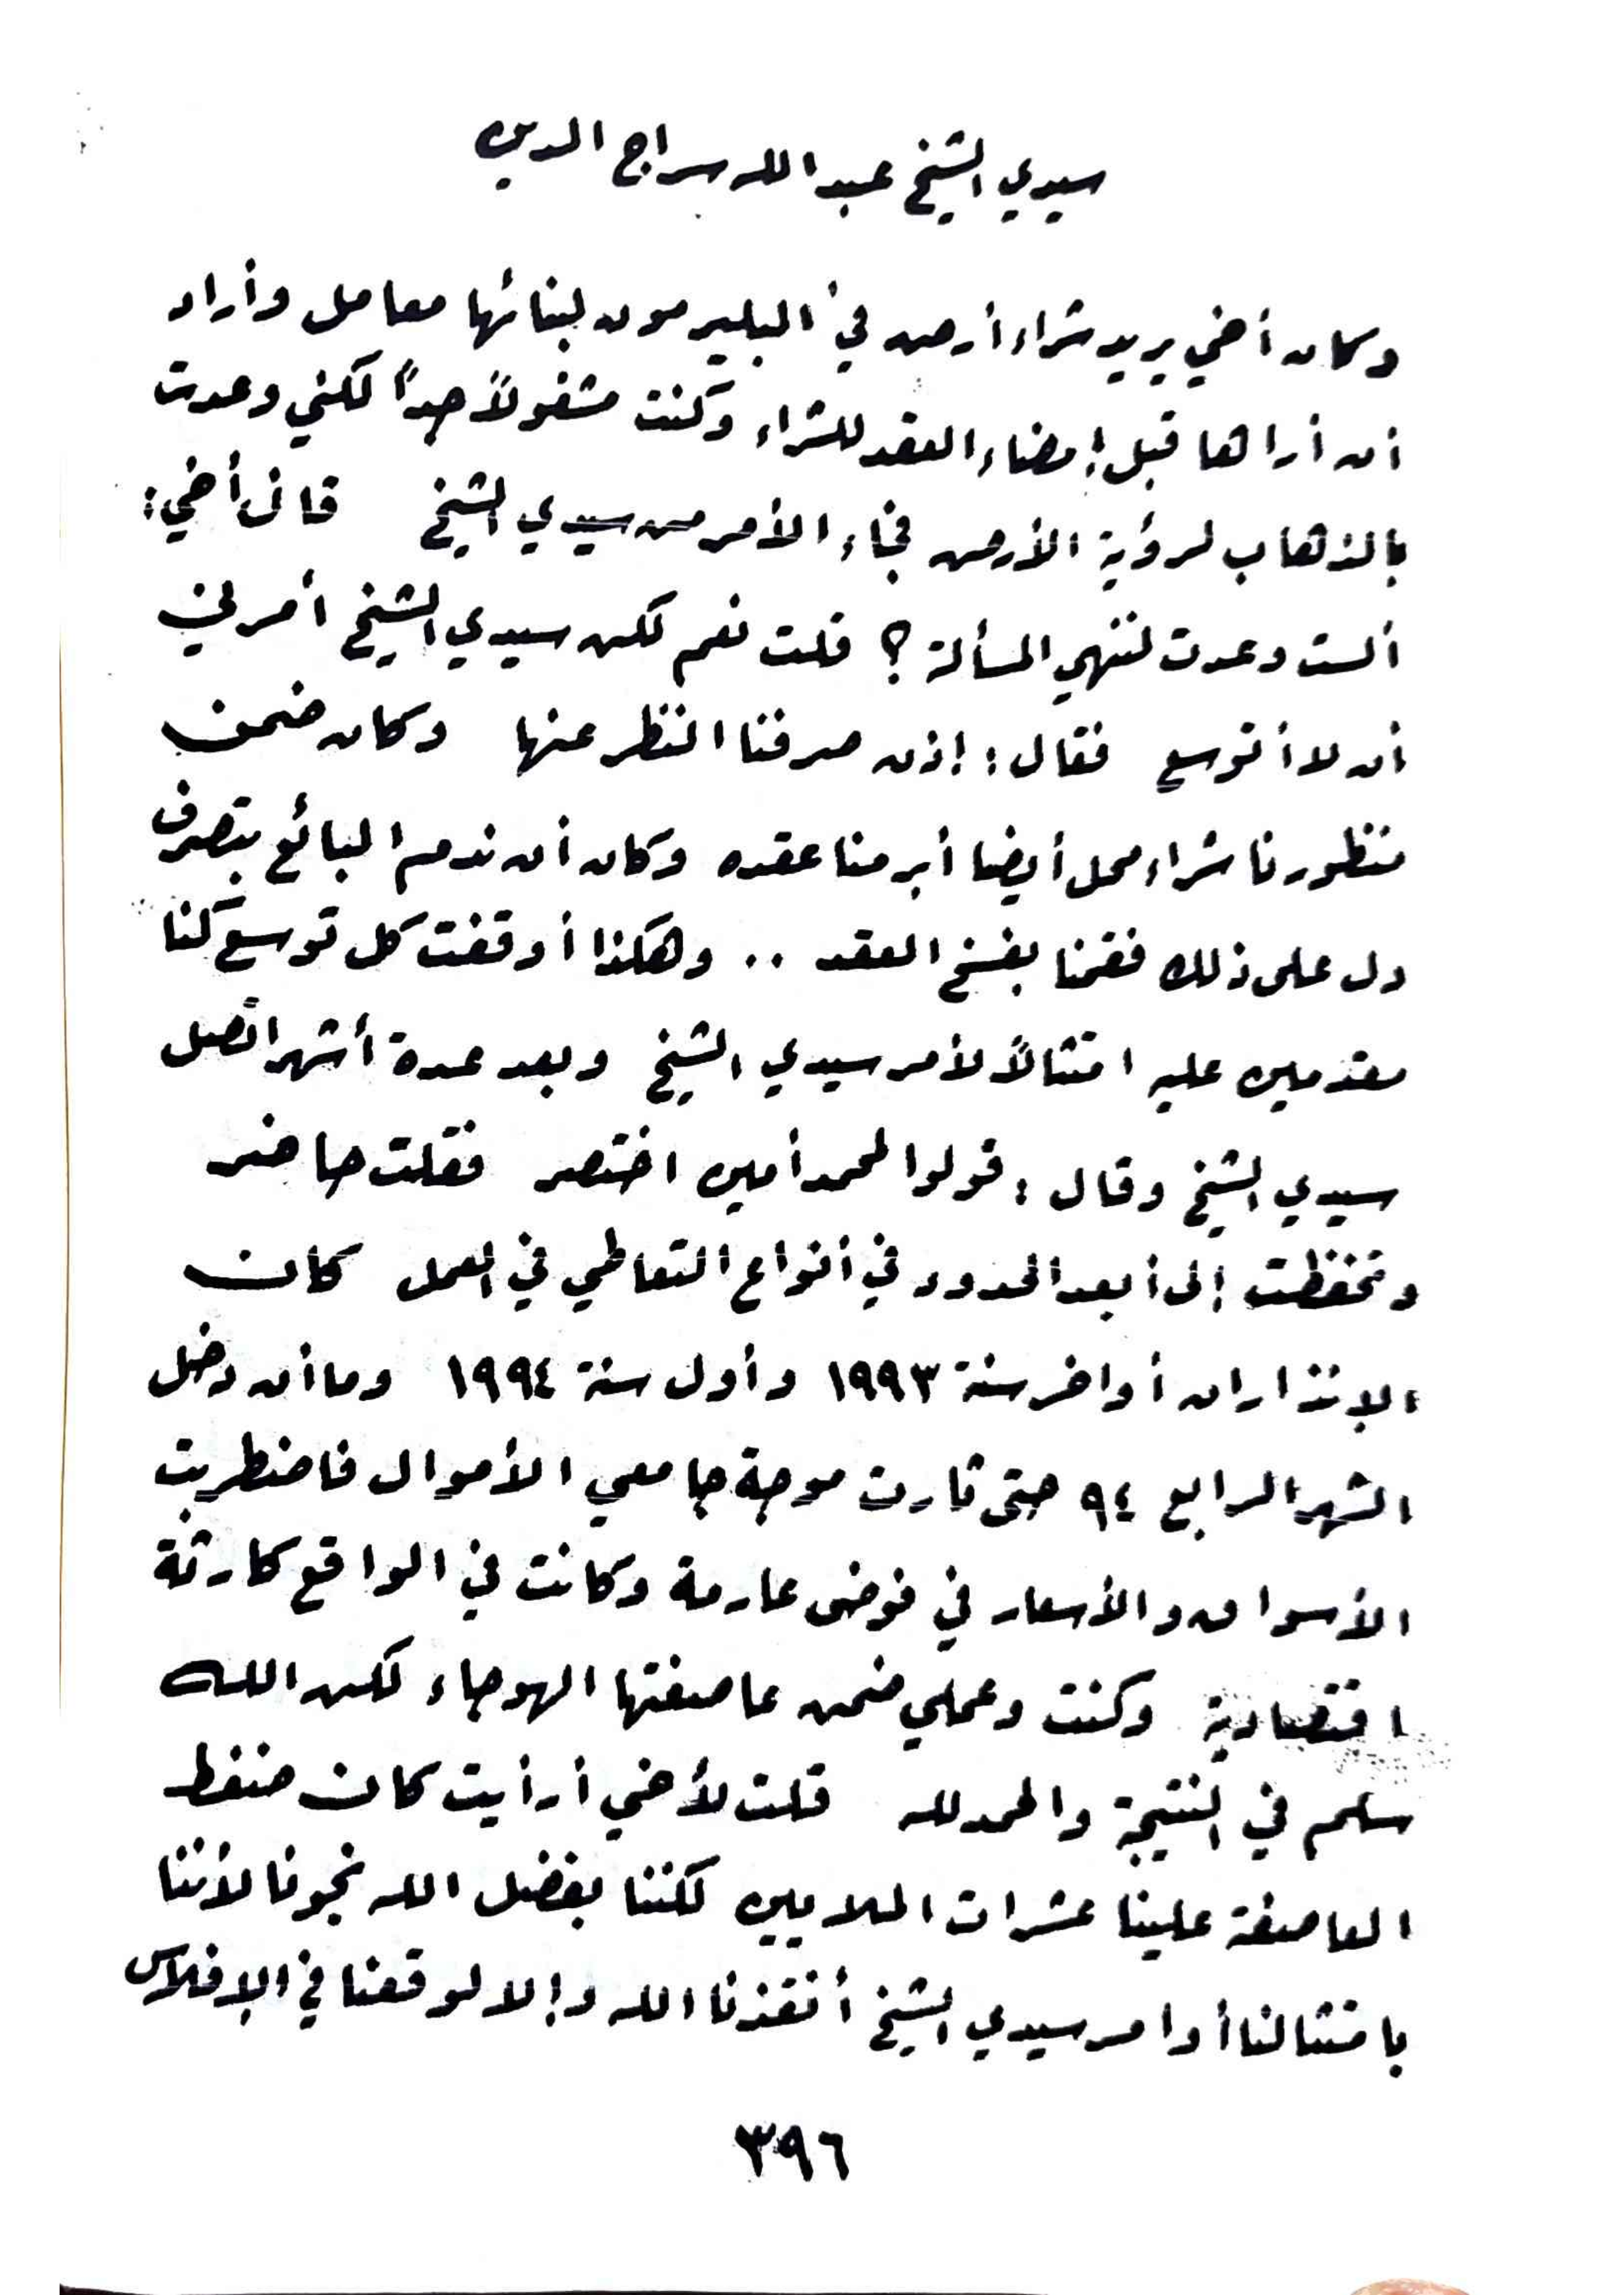 سيدي الشيخ عبد الله سراج الدين
وكان أخي يريد شراء أرض في البليرمون لبنائها معامل وأراد
أن أراها قبل إمضاء العقد للشراء وكنت مشغولاً جداً لكني وعدت
بالذهاب لرؤية الأرض فجاء الأمر من سيدي الشيخ قال أخي:
ألست وعدت لننهي المسألة؟ قلت نعم لكن سيدي الشيخ أمرني
أن لا أتوسع فقال: إذن صرفنا النظر عنها وكان ضمن
منظورنا شراء محل أيضا أبرمنا عقده وكان أن ندم البائع بتصرف
دل على ذلك فقمنا بفسخ العقد .. وهكذا أوقفت كل توسع كنا
مقدمين عليه امتثالاً لأمر سيدي الشيخ وبعد عدة أشهر اتصل
سيدي الشيخ وقال: قولوا لمحمد أمين اختصر فقلت حاضر
وتحفظت إلى أبعد الحدود في أنواع التعاطي في العمل كان
الإنذاران أواخر سنة ١٩٩٣ وأول سنة ١٩٩٤ وما أن دخل
الشهر الرابع ٩٤ حتى ثارت موجة جامعي الأموال فاضطربت
الأسواق والأسعار في فوضى عارمة وكانت في الواقع كارثة
اقتصادية وكنت وعملي ضمن عاصفتها الهوجاء لكن الله
سلم في النتيجة والحمد لله قلت لأخي أرأيت كان ضغط
العاصفة علينا عشرات الملايين لكننا بفضل الله نجونا لأننا
بامتثالنا أوامر سيدي الشيخ أنقذنا الله وإلا لوقعنا في الإفلاس
٣٩٦